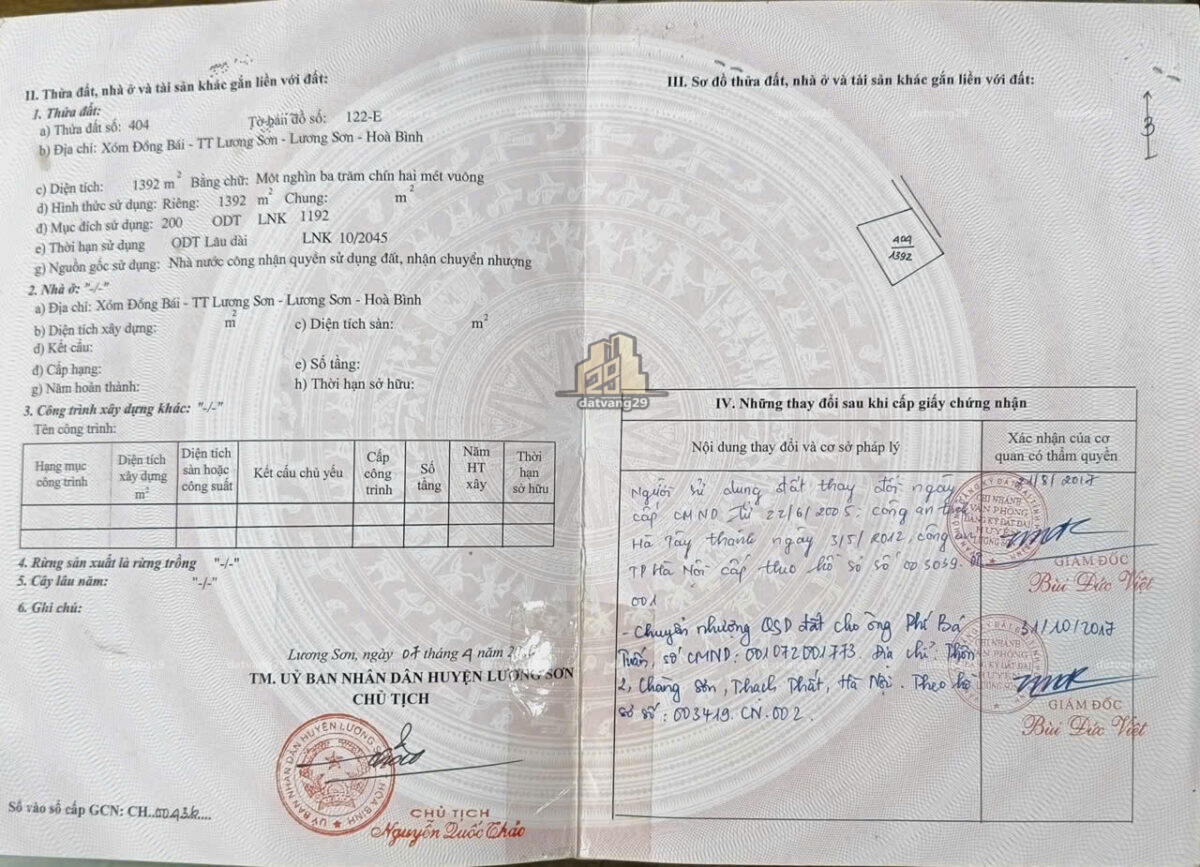 II. Thửa đất, nhà ở và tài sản khác gắn liền với đất:
1. Thửa đất:
a) Thửa đất số: 404 Tờ bản đồ số: 122-E
b) Địa chỉ: Xóm Đồng Bái - TT Lương Sơn - Lương Sơn - Hoà Bình
c) Diện tích: 1392 m2 Bằng chữ: Một nghìn ba trăm chín hai mét vuông
d) Hình thức sử dụng: Riêng: 1392 m2 Chung: m2
đ) Mục đích sử dụng: 200 ODT LNK 1192
e) Thời hạn sử dụng ODT Lâu dài LNK 10/2045
g) Nguồn gốc sử dụng: Nhà nước công nhận quyền sử dụng đất, nhận chuyển nhượng
2. Nhà ở: "-/-"
a) Địa chỉ: Xóm Đồng Bái - TT Lương Sơn - Lương Sơn - Hoà Bình
b) Diện tích xây dựng: m2 c) Diện tích sàn: m2
d) Kết cấu:
đ) Cấp hạng: e) Số tầng:
g) Năm hoàn thành: h) Thời hạn sở hữu:
3. Công trình xây dựng khác: "-/-"
Tên công trình:
Hạng mục công trình
Diện tích xây dựng m2
Diện tích sàn hoặc công suất
Kết cấu chủ yếu
Cấp công trình
Số tầng
Năm HT xây
Thời hạn sở hữu
4. Rừng sản xuất là rừng trồng "-/-"
5. Cây lâu năm: "-/-"
6. Ghi chú:
Lương Sơn, ngày 07 tháng 4 năm
TM. UỶ BAN NHÂN DÂN HUYỆN LƯƠNG SƠN
CHỦ TỊCH
ỦY BAN NHÂN DÂN HUYỆN LƯƠNG SƠN
HOÀ BÌNH
CHỦ TỊCH
Nguyễn Quốc Thảo
Số vào sổ cấp GCN: CH
datvang29
III. Sơ đồ thửa đất, nhà ở và tài sản khác gắn liền với đất:
B
404
1392
IV. Những thay đổi sau khi cấp giấy chứng nhận
Nội dung thay đổi và cơ sở pháp lý
Xác nhận của cơ quan có thẩm quyền
Người sử dụng đất thay đổi ngày
cấp CMND từ 22/6/2005: công an tỉnh
Hà Tây thành ngày 3/5/2012, công an
TP Hà Nội cấp theo hồ sơ số 003039.
001
21/8/2017
CHI NHÁNH
VĂN PHÒNG
ĐĂNG KÝ ĐẤT ĐAI
HUYỆN
LƯƠNG SƠN
GIÁM ĐỐC
Bùi Đức Việt
- Chuyển nhượng QSD đất cho ông Phí Bá
Tuấn, số CMND: 001072001773. Địa chỉ: Thôn
2, Chàng Sơn, Thạch Thất, Hà Nội. Theo hồ
sơ số: 003419.CN.002.
31/10/2017
CHI NHÁNH
VĂN PHÒNG
ĐĂNG KÝ ĐẤT ĐAI
HUYỆN
LƯƠNG SƠN
GIÁM ĐỐC
Bùi Đức Việt